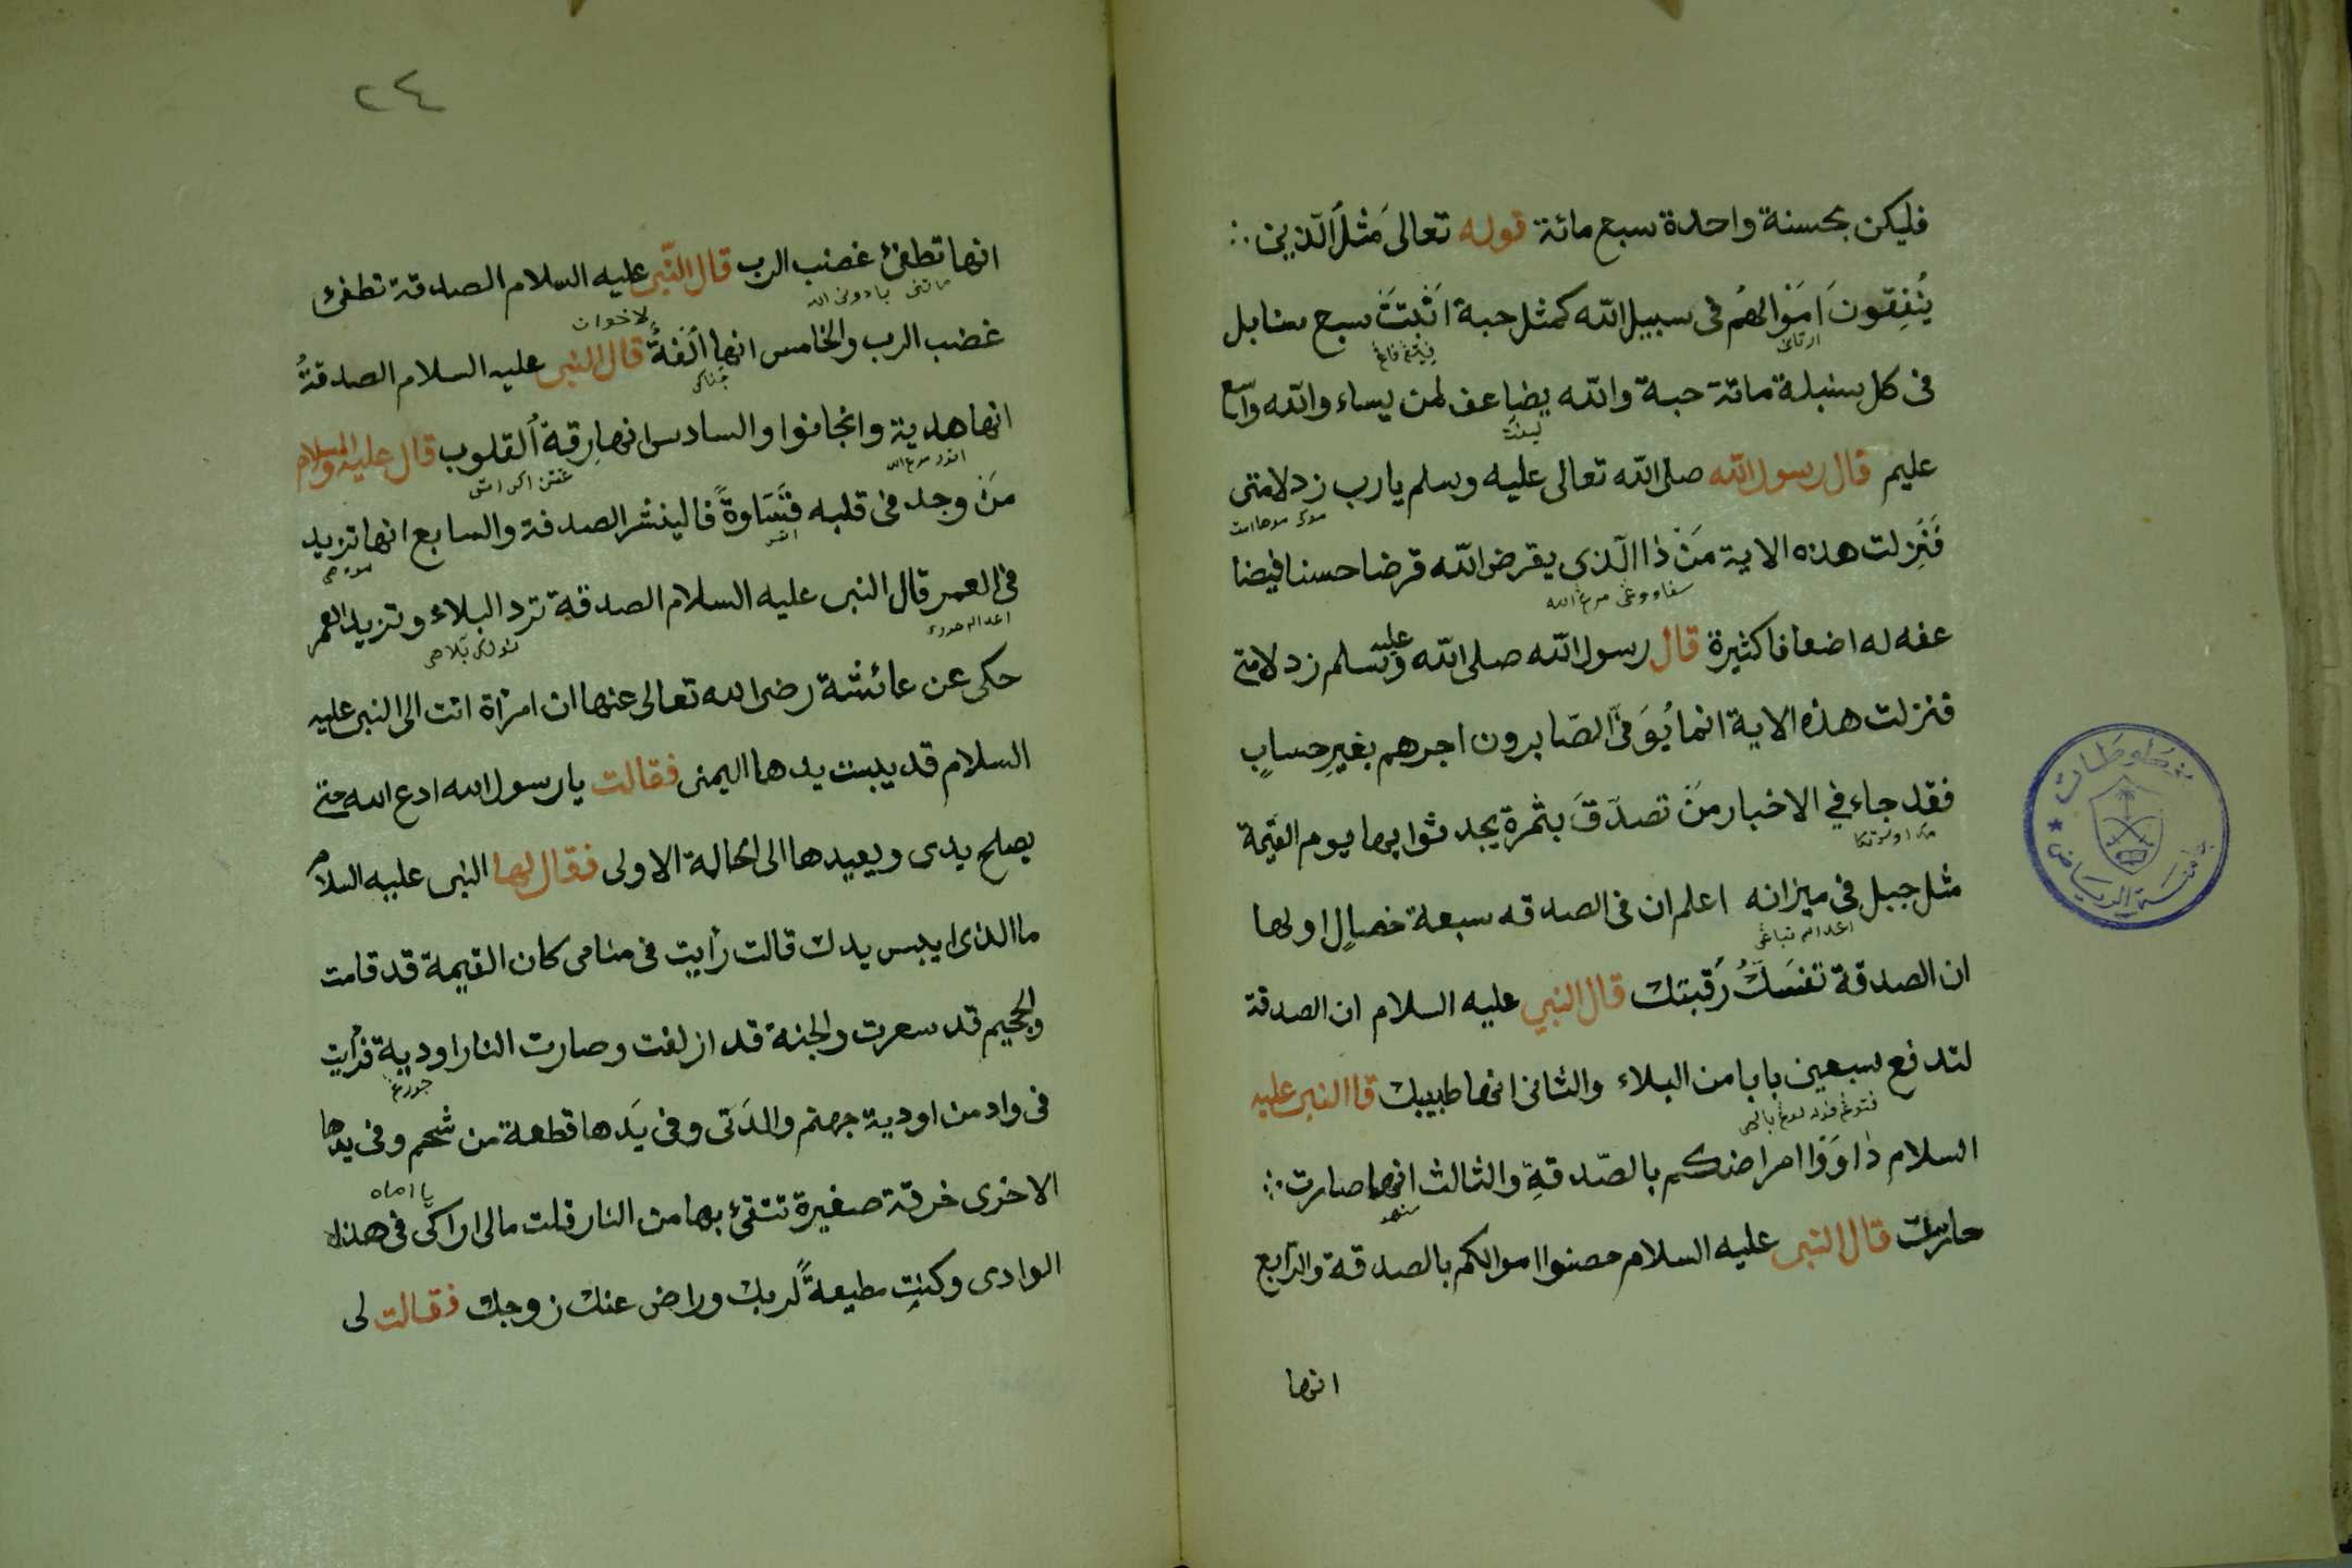 فليكن بحسنة واحدة سبع مائة قوله تعالى مَثَلُ الّذين
يُنفِقونَ اَمَوَالهُم فى سبيل الله كمثل حبة اَنْبَتَتْ سبع سنابل
فى كل سنبلة مائة حبة والله يضاعف لمن يساء والله واسع
عليم قال رسول الله صلى الله تعالى عليه وسلم يارب زد لامتى
فَنَزلت هذه الاية مَنْ ذا الّذى يقرض الله قرضا حسنا فيضا
عفه له اضعافا كثيرة قال رسول الله صلى الله عليه وسلم زد لامتى
فنزلت هذه الاية انما يُوَفىَّ الصّابرون اجرهم بغيرِ حسابٍ
فقد جاء في الاخبار مَنْ تصدَّقَ بثمرة يجد ثوابها يوم القيمة
مثل جبل فى ميزانه اعلم ان فى الصدقه سبعة خصالٍ اولها
ان الصدقة تفسَكُ رَقبتك قال النبي عليه السلام ان الصدقة
لتدفع سبعين بابا من البلاء والثانى انها طبيبك قا النبى عليه
السلام دٰاوَوْا امراضكم بالصّدقةِ والثالث انها صارت
حارست قال النبى عليه السلام حصنوا اموالكم بالصدقة والرّابع
انها
٢٤
انها تطفئ غضب الرب قال النّبى عليه السلام الصدقة تطفئ
غضب الرب والخامس انها اُلفةٌ لاخوان قال النبى عليه السلام الصدقةُ
انها هدية وانجافوا والسادس انها رِقةُ القلوب قال عليه السلام
مَنْ وجد فى قلبه قَسَاوةً فالينشر الصدقة والسابع انها تزيد
فى العمر قال النبى عليه السلام الصدقة ترد البلاء وتزيد العمر
حكى عن عائشة رضى الله تعالى عنها ان امرٔاة اتت الى النبى عليه
السلام قد يبست يدها اليمنى فقالت يا رسول الله ادع الله حتى
يصلح يدى ويعيدها الى الحالة الاولى فقال لها النبى عليه السلام
ما الذى ايبس يدك قالت رأيت فى منامى كان القيمة قد قامت
والجحيم قد سعرت والجنة قد ازلفت وصارت النار اودية فرأيت
فى واد من اودية جهنم والدَتى وفى يَدها قطعة من شحم وفى يدها
الاخرى خرقة صغيرة تتقئ بها من النار قلت مالى اراكى يا اماه فى هذه
الوادى وكنتِ مطيعةً لربك وراض عنك زوجك فقالت لى